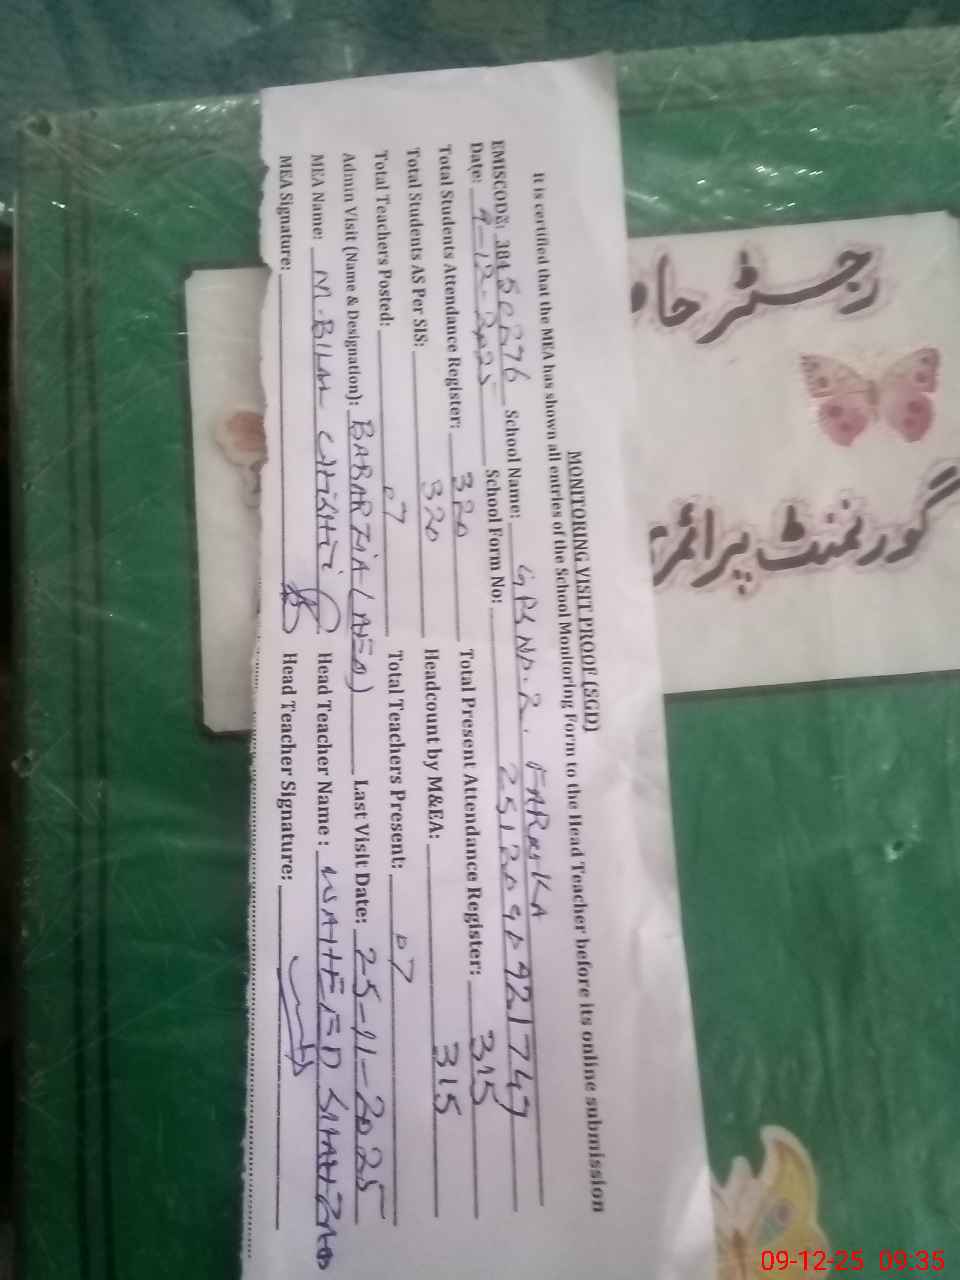 MONITORING VISIT PROOF (SGD)
It is certified that the MEA has shown all entries of the School Monitoring Form to the Head Teacher before its online submission
EMISCODE: 38450276 School Name: GPS NO. 2. FAROKA
Date: 9-12-2025 School Form No: 2512090921747
Total Students Attendance Register: 320 Total Present Attendance Register: 315
Total Students AS Per SIS: 320 Headcount by M&EA: 315
Total Teachers Posted: 07 Total Teachers Present: 07
Admin Visit (Name & Designation): BABAR ZIA (AEO) Last Visit Date: 25-11-2025
MEA Name: M. BILAL CHISHTI Head Teacher Name: WAHEED SHAHZAD
MEA Signature: Head Teacher Signature:
رجسٹر حا
گورنمنٹ پرائمر
09-12-25 09:35